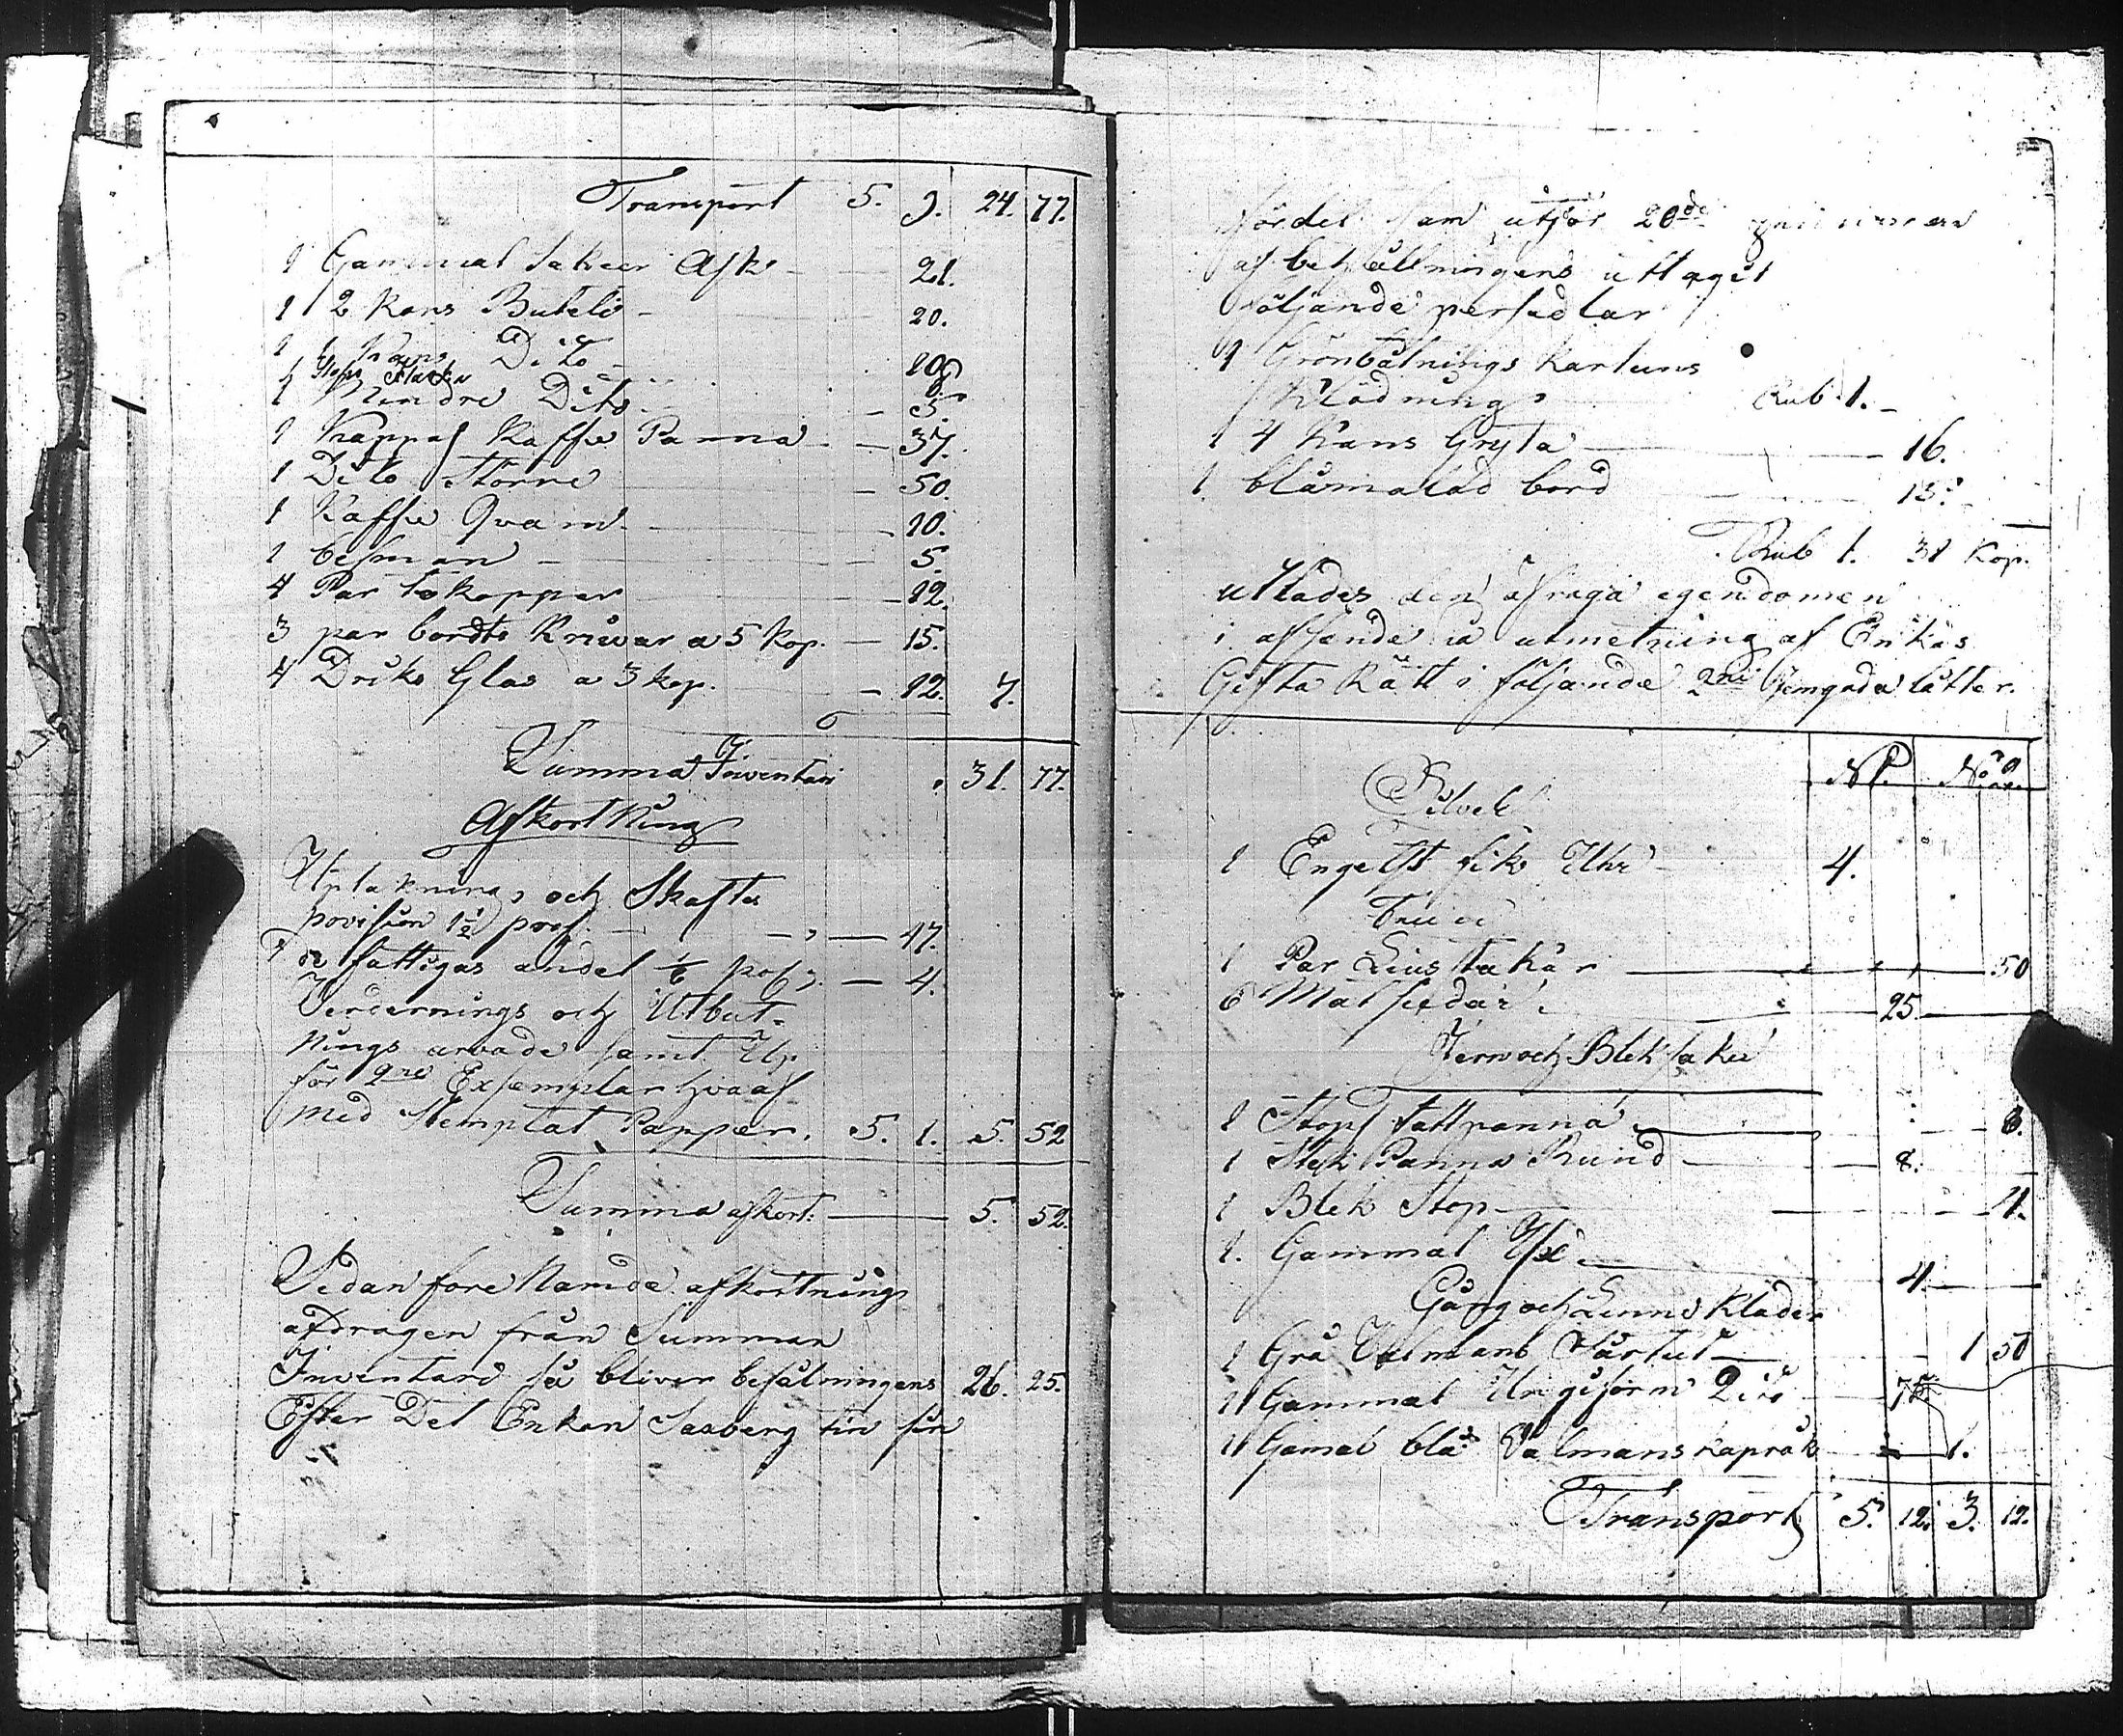 Transport 5. 9. 24. 77.
1 Gammal Saker Ask 21.
1 2 Kans Butelio 20.
1 1 Kans Dito 10
1 Mindre Dito 5.
1 Koppar Kaffe Panna 37.
1 Dito Större 50.
1 Kaffe Qvarn 10.
1 besman 5.
4 Par te kopper 12.
3 par bordts Knivar a 5 kop. 15.
4 Driks Glas a 3 kop. 12. 7.
Summa Inventari 31. 77.
Afkortning
Uptaknings och Skafts
provision 1½ pros. 47.
de fattigas andel ⅛ pros. 4.
Verdernings och Utbut-
nings arvade samt
för 2ne Exsemplar hvaaf
med Stemplat Papper. 5. 1. 5. 52
Summa afkort: 5. 52.
Sedan fore Namde afkortning
afdragen från Summan
Inventari så bliver behålningens 26. 25.
Efter Det Enkan Saxberg tin sin
fördel som utför 20de
af behållningens uttagit
följande persedlar
1 Grönbåtnings Kartuns
Klädning Rub 1. -
1 4 Kans Gryta 16.
1 blåmalad bord 15.
Rub 1. 31 Kop.
utlades den öfriga egendomen
i afseende a utmetning af Enkas
Gifta Rätt i följande 2ne Jemgoda låtter.
No 1. No 2.
Silver
1 Engelst fik Uhr 4.
1 Par Liustakar 50
6 Mat 25.
Jern och Blek saker
1 Stop fattpanna 8.
1 Stek Panna Rund 8.
1 Blek Stop 4.
1. Gammal Yxe 4.
Gång och Linne Klader
1 Grå Valmans Surtut 1 50
1 Gammal Ungiform Dito 75
1 Gamal blå Valmans kapråk 1.
Transport 5. 12. 3. 12.